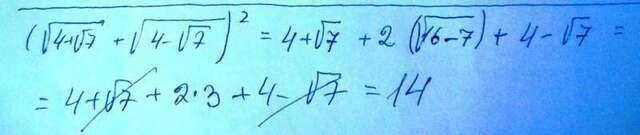 (√(4+√7) + √(4-√7))² = 4+√7 + 2(√(16-7)) + 4-√7 =
= 4+√7 + 2·3 + 4-√7 = 14